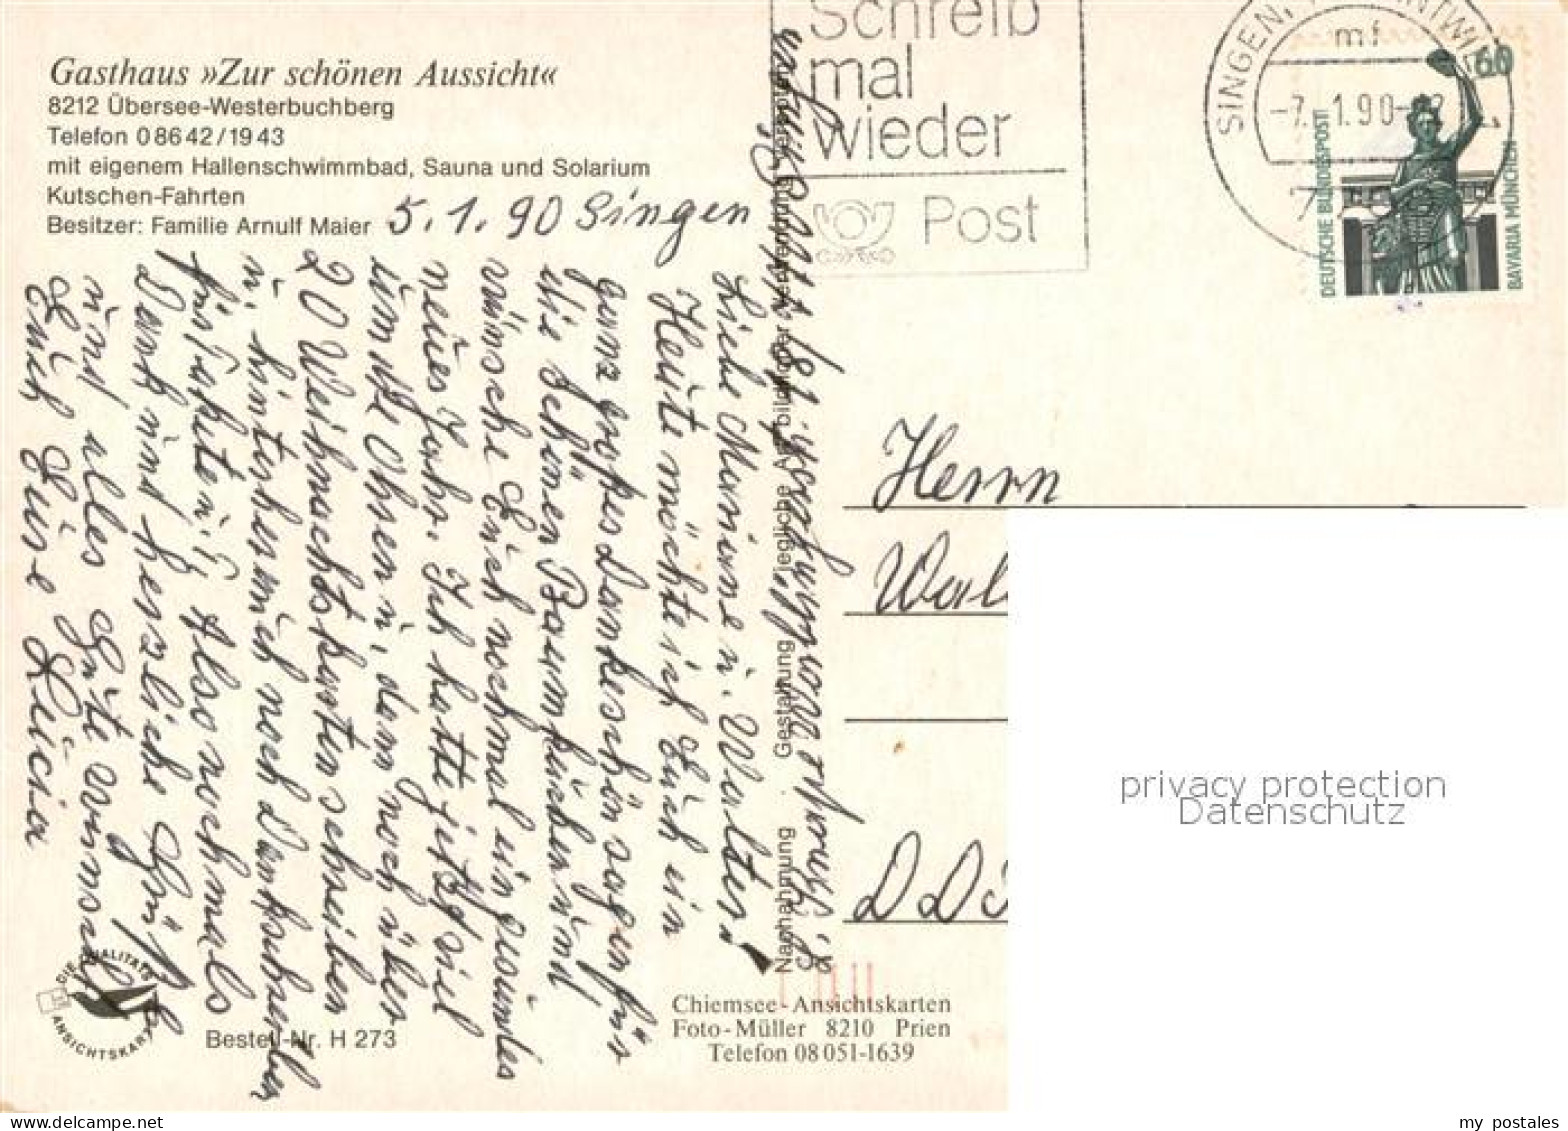 Gasthaus »Zur schönen Aussicht«
8212 Übersee-Westerbuchberg
Telefon 0 86 42 / 19 43
mit eigenem Hallenschwimmbad, Sauna und Solarium
Kutschen-Fahrten
Besitzer: Familie Arnulf Maier
5.1.90 Singen
Liebe Marianne ü. Walter!
Heute möchte ich Euch ein
ganz großes Dankeschön sagen für
die schönen Baumkuchen und
wünsche Euch nochmal ein gesundes
neues Jahr. Ich hatte jetzt viel
um die Ohren ü. dann noch über
20 Weihnachtskarten schreiben
ü. hinterher noch
Also nochmals
Dank und herzliche Grüße
und alles Gute wünscht
Euch Eure Luzia
Schreib
mal
wieder
Post
SINGEN,
mf
-7.-1.90-
60
DEUTSCHE BUNDESPOST
BAVARIA MÜNCHEN
Nachahmung
Gestaltung
Herrn
Wal
DD
DIE QUALITÄTS
ANSICHTSKARTE
Bestell-Nr. H 273
Chiemsee-Ansichtskarten
Foto-Müller 8210 Prien
Telefon 08 051-1639
privacy protection
Datenschutz
my postales